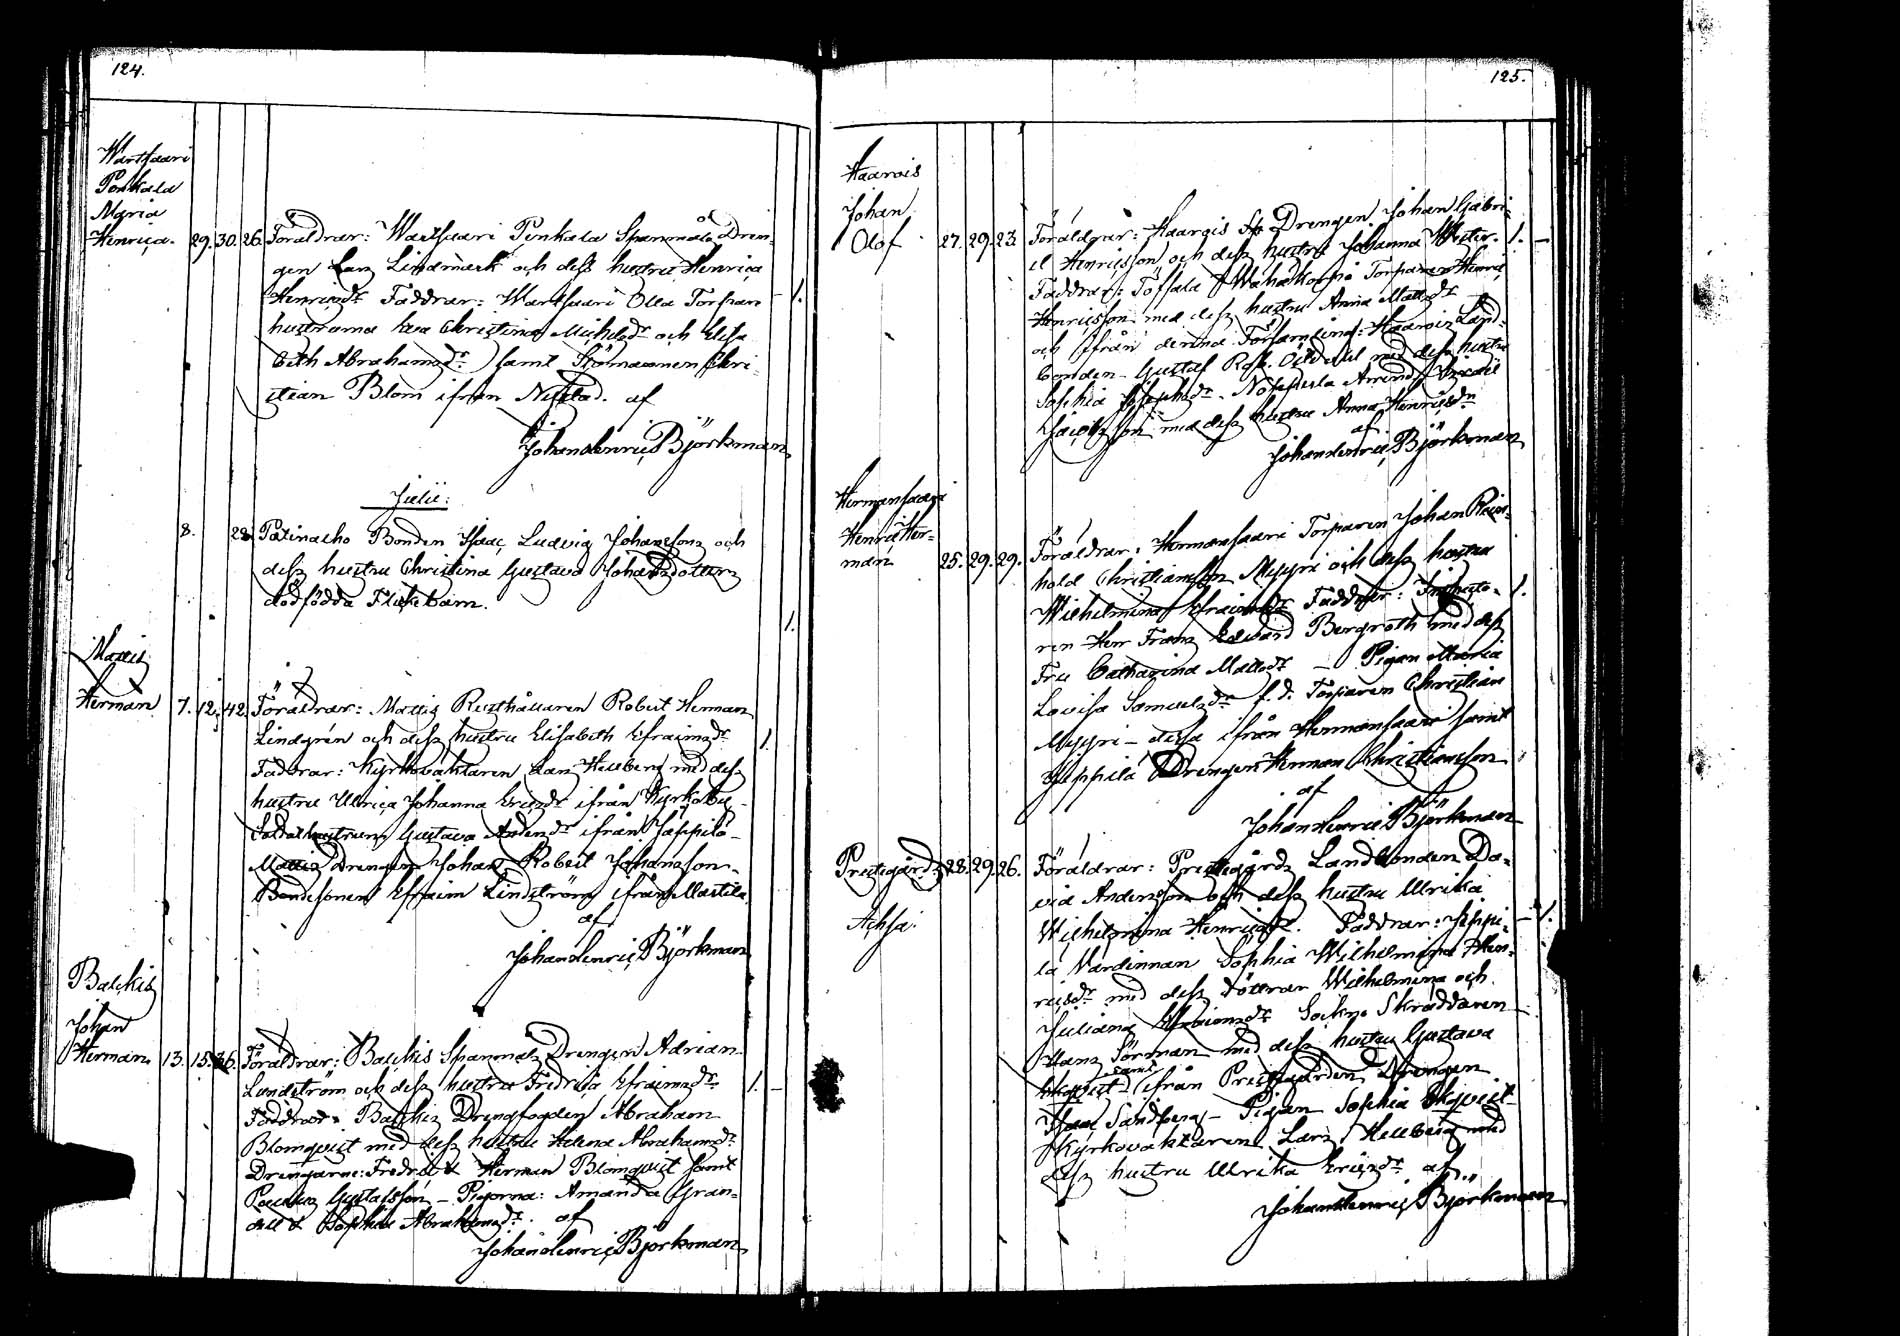 124.
Wartsaari
Penkala
Maria
Henrica. 29. 30. 26. Föräldrar: Wartsaari Penkala Spanmåls Dren-
gen Lars Lindmark och dess hustru Henrica
Henricsdr. Faddrar: Wartsaari Olla Torpare - 1.
hustrurna Eva Christina Michelsdr och Elisa
beth Abrahamsdr samt Sjömannen Chri-
stian Blom ifrån Nystad. af
Johan Henric Björkman
Julii:
8. 28. Patinalho Bonden Isaac Ludvig Johansson och
dess hustru Christina Gustava Johansdotters
dödfödda Flickebarn.
1.
Mattis
Herman 7. 12. 42. Föräldrar: Mattis Rusthållaren Robert Herman
Lindgrén och dess hustru Elisabeth Efraimsdr
Faddrar: Kyrkovaktaren Lars Hellberg med dess 1.
hustru Ulrica Johanna Ericsdr ifrån Kyrkoby -
Soldathustrun Gustava Andersdr ifrån Jäppilä -
Mattis Drengen Johan Robert Johansson -
Bondesonen Efraim Lindström ifrån Mastila
af
Johan Henric Björkman
Balckis
Johan
Herman. 13. 15. 36. Föräldrar: Balckis Spanmåls Drengen Adrian
Lundström och dess hustru Fredrica Efraimsdr 1. -
Faddrar: Balckis Drengfogden Abraham
Blomqvist med dess hustru Helena Abrahamsdr
Drengarne: Fredric & Herman Blomqvist samt
Gustafsson - Pigorna: Amanda Gran-
dell & Sophia Abrahamsdr. af
Johan Henric Björkman
125.
Haarois
Johan
Olof 27. 29. 23. Föräldrar: Haarois Drengen Johan Gabri-
el Henricsson och dess hustru Johanna Wester. 1. -
Faddrar: Töfsala Wähäkoski Torparen Henric
Henricsson med dess hustru Anna Mattsdr
och ifrån denna Församling: Haarois Land-
bonden Gustaf Rob. med dess hustru
Sophia Josephsdr - Nöpperla Israel
Jacobsson med dess hustru Anna Henricsdr
af
Johan Henric Björkman
Hermansaari
Henric Her-
man 25. 29. 29. Föräldrar: Hermansaari Torparen Johan Rein-
hold Christiansson Myyri och dess hustru
Wilhelmina Efraimsdr Faddrar: Inspecto- 1.
ren Herr Frans Edvard Bergroth med dess
Fru Catharina Mattsdr - Pigan Maria
Lovisa Samuelsdr f.d. Torparen Christian
Myyri - dessa ifrån Hermansaari samt
Jäppilä Drengen Herman Christiansson
af
Johan Henric Björkman
Prestegård 28. 29. 26. Föräldrar: Prestegårds Landbonden Da-
vid Andersson och dess hustru Ulrika
Achsa. Wilhelmina Henricsdr. Faddrar: Jäppi- - 1.
lä Värdinnan Sophia Wilhelmina Hen-
ricsdr med dess döttrar Wilhelmina och
Juliana Efraimsdr Sockne Skräddaren
Hans Sörman med dess hustru Gustava
samt
Ekqvist ifrån Prestgården Drengen
Isaac Sandberg - Pigan Sophia Ekqvist
Kyrkovaktaren Lars Hellberg med
dess hustru Ulrika Ericsdr af
Johan Henric Björkman